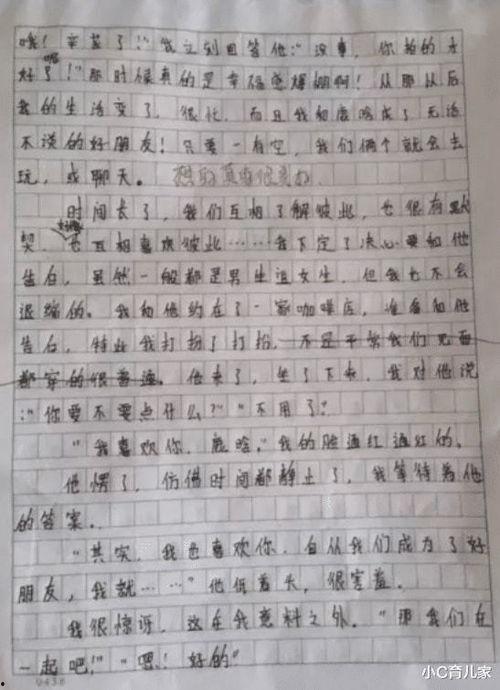 哦！辛苦了！"我立刻回答他："没事，你拍的太
好了！"那时候真的是幸福感爆棚啊！从那以后
我的生活变了，很忙，而且我和鹿晗成了无话
不谈的好朋友！只要一有空，我们俩个就会去
玩，或聊天。
时间长了，我们互相了解彼此，也很有默
契，也互相喜欢彼此……我下定了决心要和他
告白，虽然一般都是男生追女生，但我也不会
退缩的。我和他约在了一家咖啡店，准备和他
告白，特此我打扮了打扮，不是平常我们见面
都穿的很普通。他来了，坐了下来，我对他说
："你要不要点什么？""不用了。"
"我喜欢你，鹿晗。"我的脸通红通红的。
他愣了，仿借时间都静止了，我等待着他
的答案。
"其实，我也喜欢你，自从我们成为了好
朋友，我就……"他低着头，很害羞。
我很惊讶，这在我意料之外。"那我们在
一起吧！""嗯！好的"
0438
小C育儿家